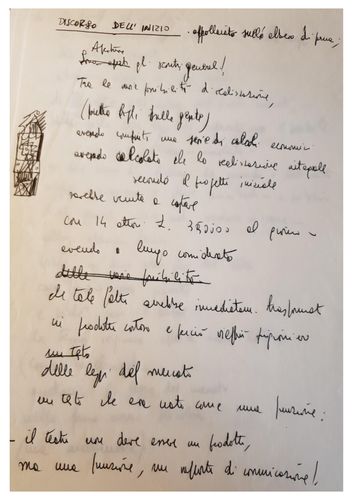 DISCORSO DELL'INIZIO - appollaiato sull'albero di prua;
Aperti
gli scontri generali!
Tra le varie possibilità di realizzazione,
(pietra figli della gente)
avendo compiuto una serie di calcoli economici
avendo calcolato che la realizzazione integrale
secondo il progetto iniziale
sarebbe venuta a costare
con 14 attori £. al giorno -
avendo a lungo considerato
delle varie possibilità
che tale fatto avrebbe immediatam. trasformato
in prodotto costoso e perciò
un testo
delle leggi del mercato
un testo che era nato come una funzione:
- il teatro non deve essere un prodotto,
ma una funzione, un rapporto di comunicazione!